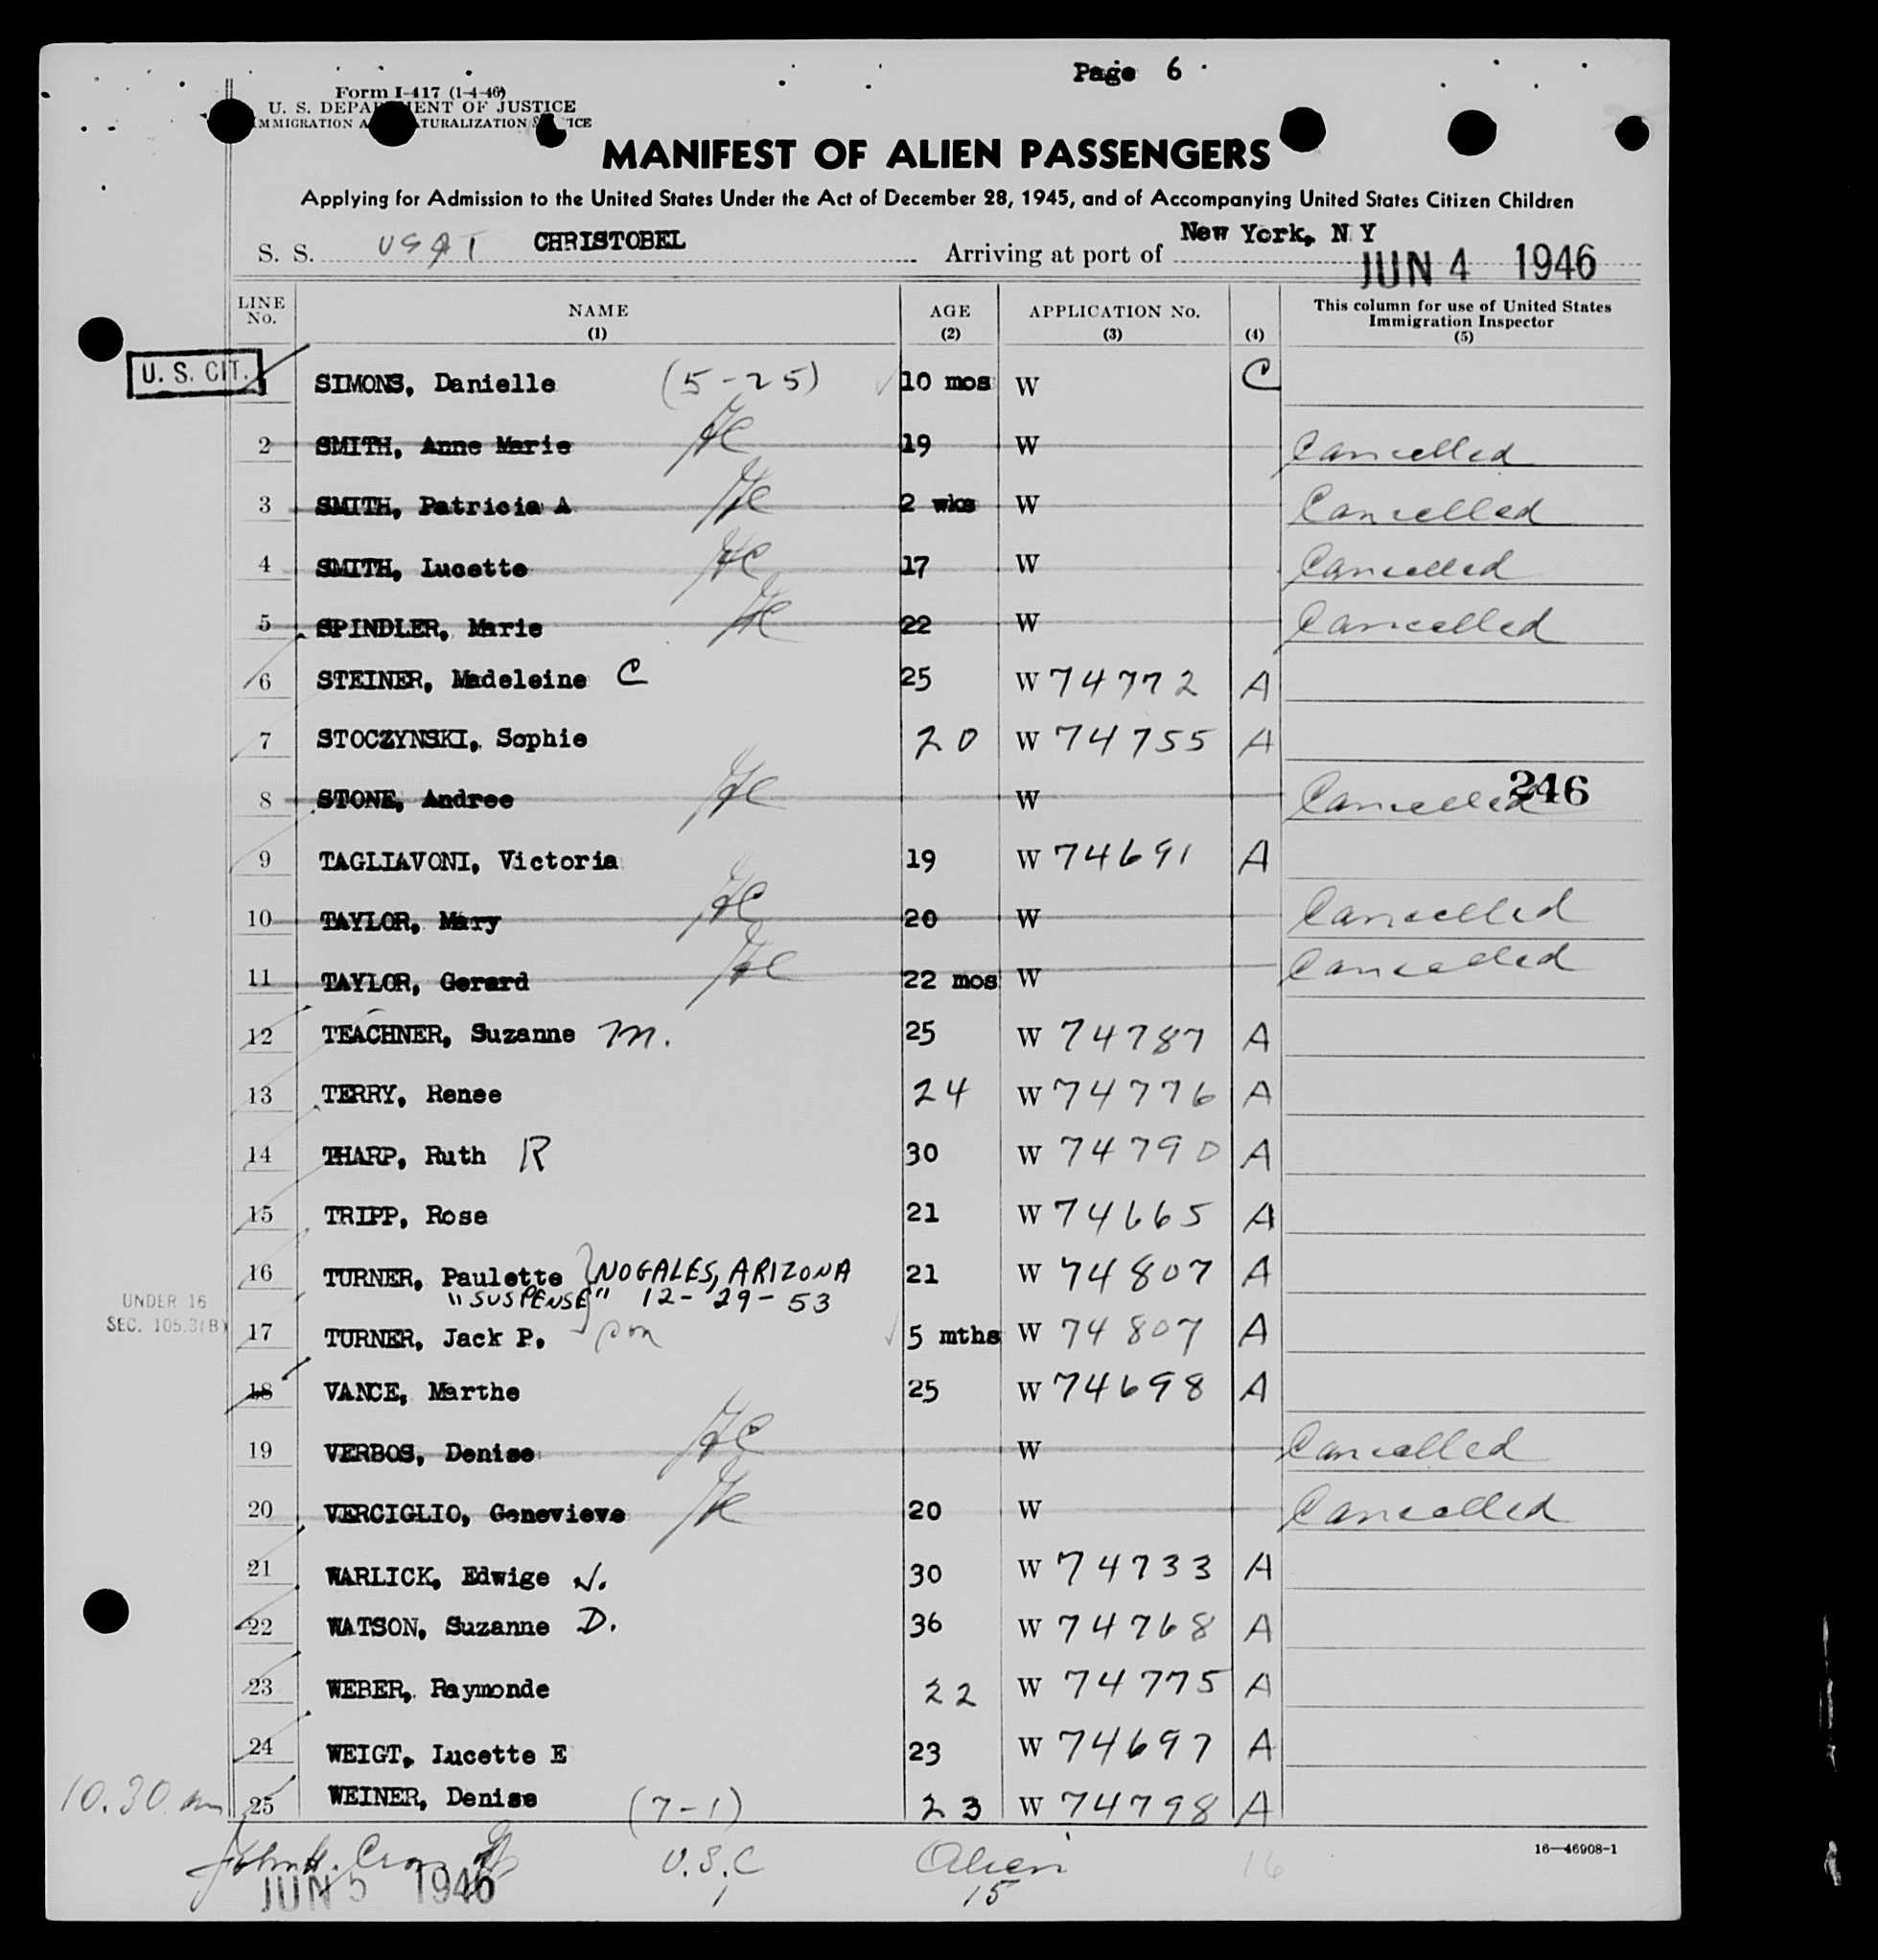 Page 6
Form I-417 (1-4-46)
U. S. DEPA MENT OF JUSTICE
MMIGRATION A TURALIZATION S ICE
MANIFEST OF ALIEN PASSENGERS
Applying for Admission to the United States Under the Act of December 28, 1945, and of Accompanying United States Citizen Children
S. S. USAT CHRISTOBEL Arriving at port of New York, N Y
JUN 4 1946
LINE No. NAME (1) AGE (2) APPLICATION No. (3) (4) This column for use of United States Immigration Inspector (5)
U. S. CIT. 1 SIMONS, Danielle (5-25) 10 mos W C
2 SMITH, Anne Marie 19 W Cancelled
3 SMITH, Patricia A 2 wks W Cancelled
4 SMITH, Lucette 17 W Cancelled
5 SPINDLER, Marie 22 W Cancelled
6 STEINER, Madeleine C 25 W 74772 A
7 STOCZYNSKI, Sophie 20 W 74755 A
8 STONE, Andree W Cancelled 246
9 TAGLIAVONI, Victoria 19 W 74691 A
10 TAYLOR, Mary 20 W Cancelled
11 TAYLOR, Gerard 22 mos W Cancelled
12 TEACHNER, Suzanne M. 25 W 74787 A
13 TERRY, Renee 24 W 74776 A
14 THARP, Ruth R 30 W 74790 A
15 TRIPP, Rose 21 W 74665 A
16 TURNER, Paulette NOGALES, ARIZONA 21 W 74807 A
"SUSPENSE" 12-29-53
UNDER 16
SEC. 105.3(B)
17 TURNER, Jack P. son 5 mths W 74807 A
18 VANCE, Marthe 25 W 74698 A
19 VERBOS, Denise W Cancelled
20 VERCIGLIO, Genevieve 20 W Cancelled
21 WARLICK, Edwige J. 30 W 74733 A
22 WATSON, Suzanne D. 36 W 74768 A
23 WEBER, Raymonde 22 W 74775 A
24 WEIGT, Lucette E 23 W 74697 A
10.30 am 25 WEINER, Denise (7-1) 23 W 74798 A
John H. U.S.C Alien 16 16—46908-1
JUN 5 1946 1 15